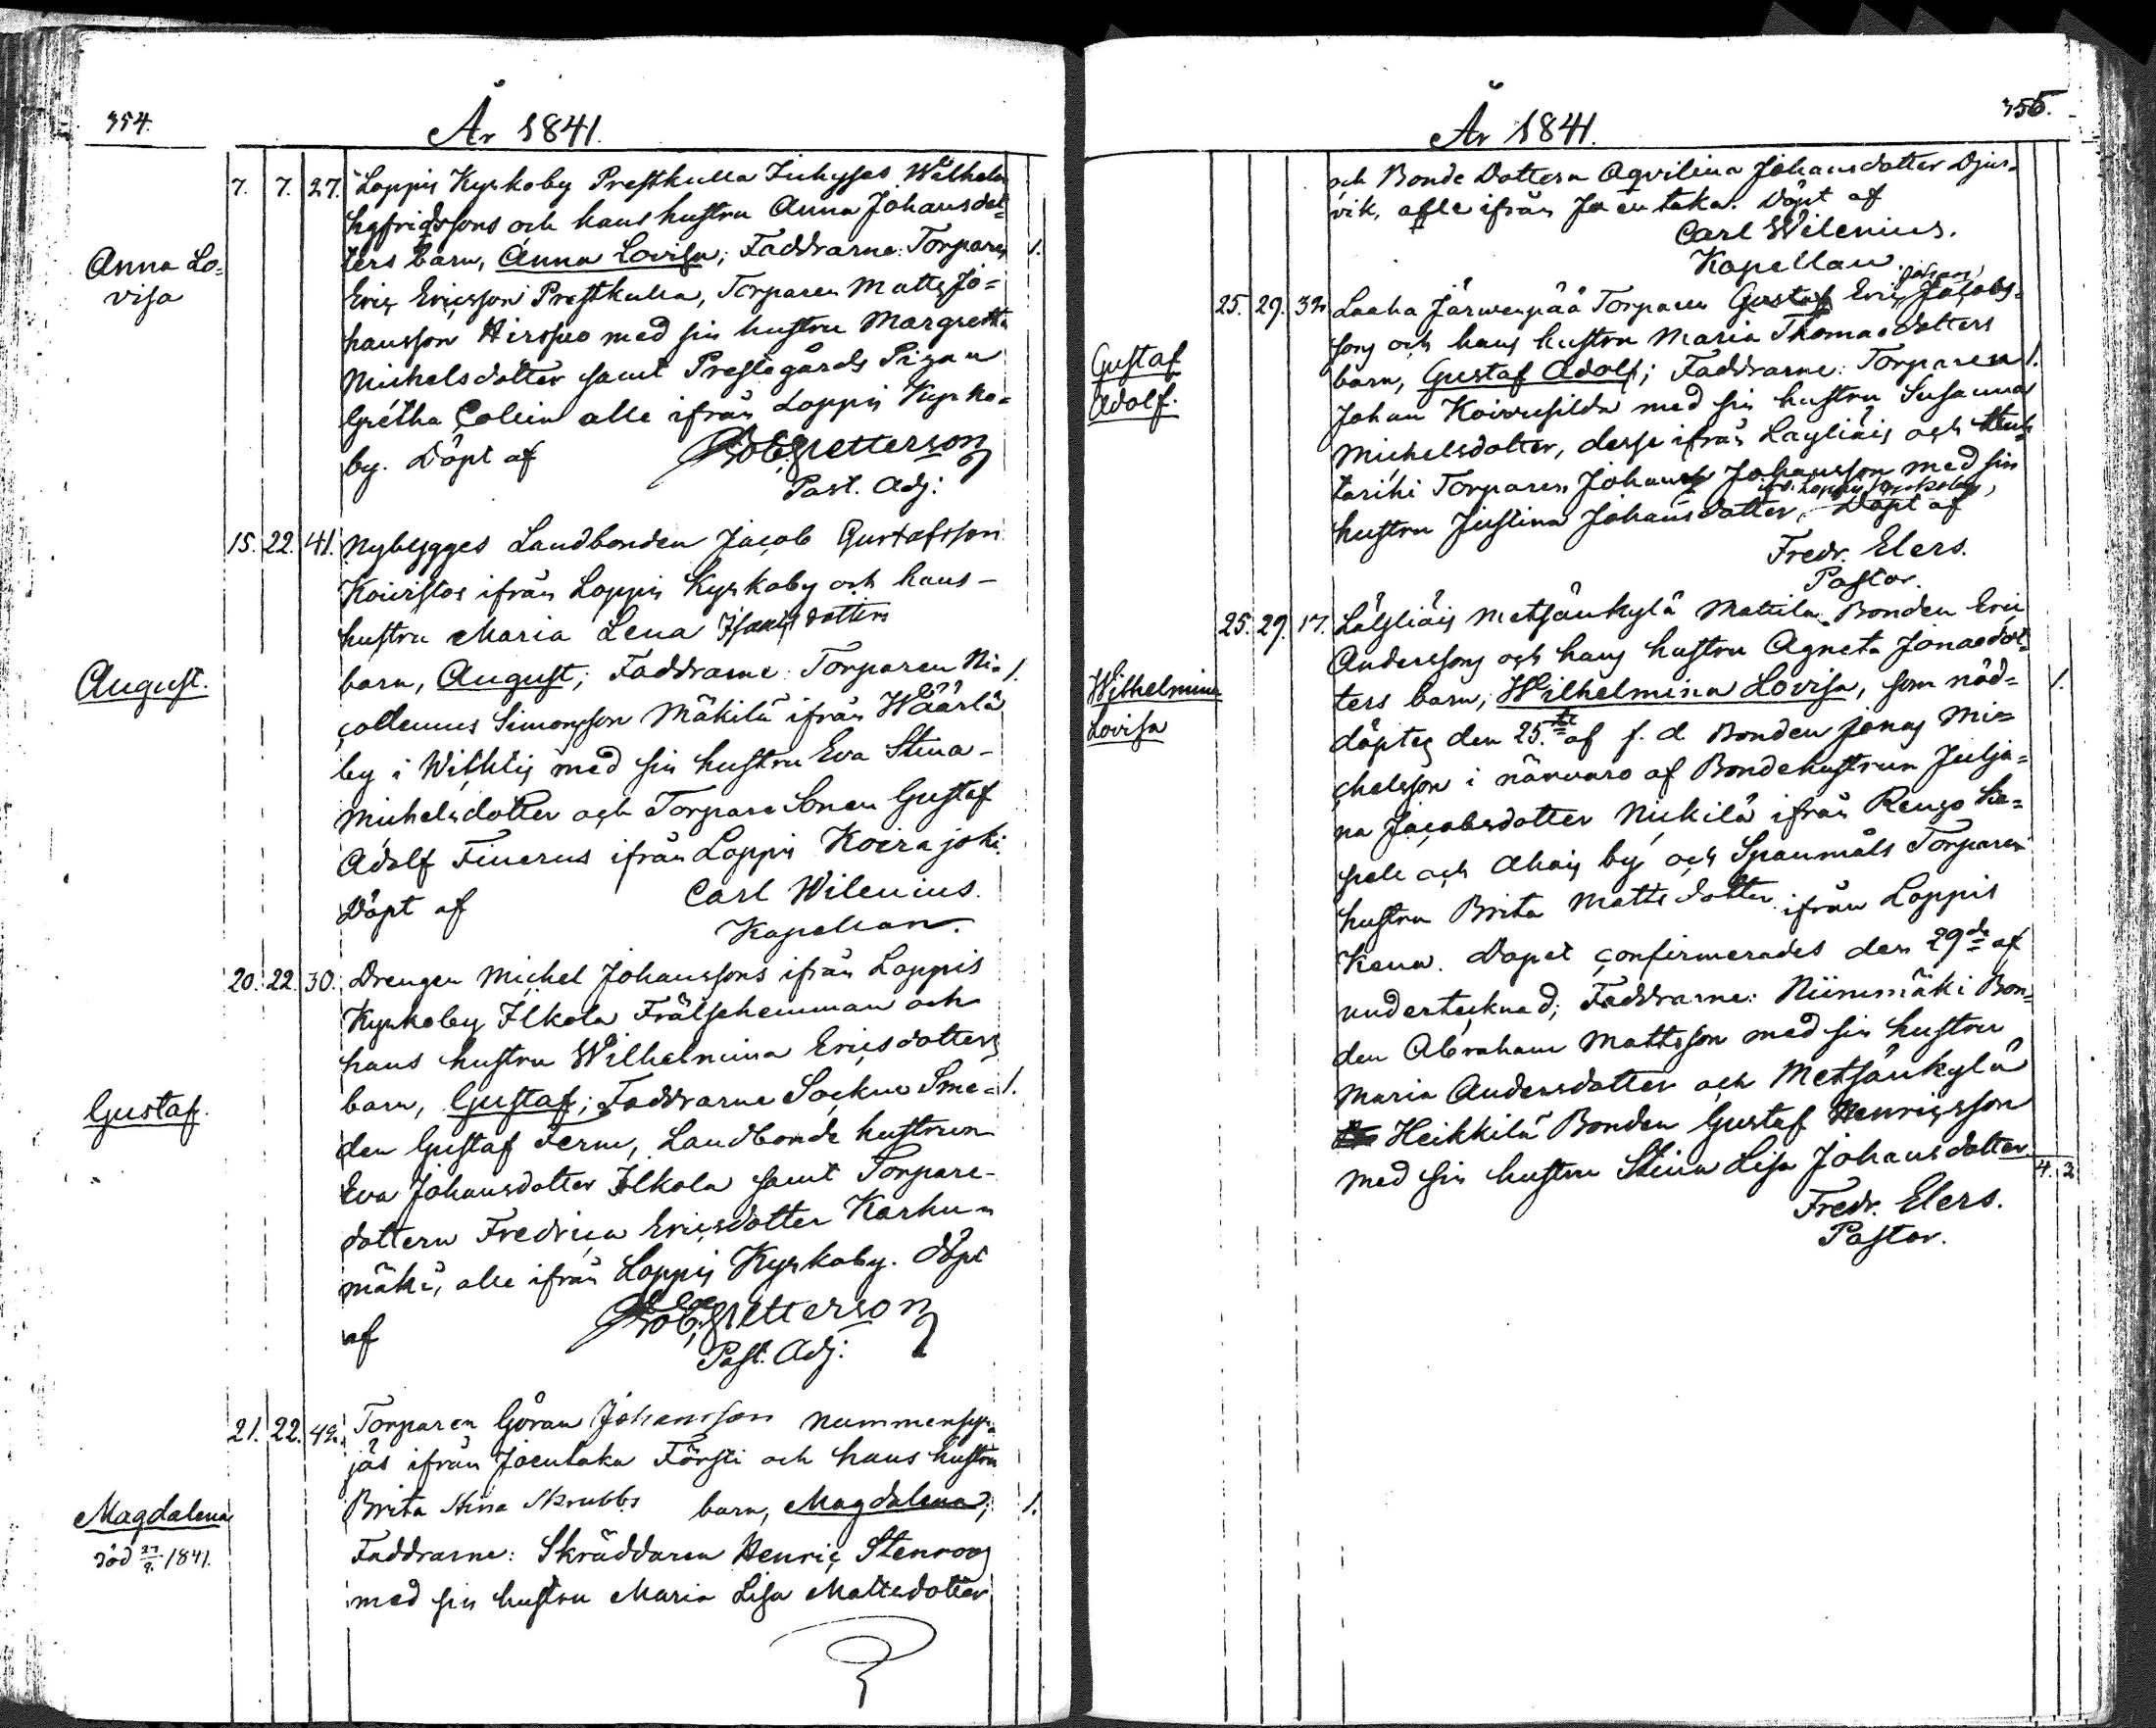 354.
År 1841.
7. 7. 27. Loppis Kyrkoby Prestkulla Wilhelm
sons och hans hustru Anna Johansdot=
ters barn, Anna Lovisa; Faddrarne: Torparen 1.
Anna Lo=
visa
Eric Ericsson Prestkulla, Torparen Matts Jo=
hansson Hirsjeo med sin hustru Margretha
Michelsdotter samt Prestegårds Pigan
Gretha Colin alle ifrån Loppis Kyrko=
by. Döpt af Petterson
Past. Adj:
15. 22. 41. Nybygges Landbonden Jacob Gustafsson
Koivistos ifrån Loppis Kyrkoby och hans
hustru Maria Lena Isaksdotters
August.
barn, August; Faddrarne: Torparen Ni= 1.
collenus Simonsson Mäkilä ifrån Wäärlä
by i Wichtis med sin hustru Eva Stina
Michelsdotter och Torpare Sonen Gustaf
Adolf Finerus ifrån Loppis Koirajoki.
Döpt af Carl Wilenius.
Kapellan.
20. 22. 30. Drengen Michel Johanssons ifrån Loppis
Kyrkoby Ilkola Frälsehemman och
hans hustru Wilhelmina Ericsdotters
Gustaf.
barn, Gustaf; Faddrarne Sockne Sme= 1.
den Gustaf Ferm, Landbonde hustrun
Eva Johansdotter Ilkola samt Torpare
dottern Fredrica Ericsdotter Karhu=
mäki, alle ifrån Loppis Kyrkoby. Döpt
af Petterson
Past. Adj:
21. 22. 42. Torparen Göran Johansson Nummensyr=
jäs ifrån Joentaka Försti och hans hustru
Magdalena
död 27/9. 1841.
Brita Stina Skrubbs barn, Magdalena; 1.
Faddrarne: Skräddaren Henric Stenroos
med sin hustru Maria Lisa Mattsdotter
355.
År 1841.
och Bonde Dottern Aqvilina Johansdotter Djur=
vik, alle ifrån Joentaka. Döpt af
Carl Wilenius.
Kapellan.
Johan
25. 29. 32. Laaka Järwenpää Torparen Gustaf Eric Jacobs=
sons och hans hustru Maria Thomasdotters
Gustaf
Adolf.
barn, Gustaf Adolf; Faddrarne: Torparen 1.
Johan Koivusilda med sin hustru Susanna
Michelsdotter, desse ifrån Läyliäis och
tarihi Torparen Johan Johansson med sin
ifrån Loppis Kyrkoby,
hustru Justina Johansdotter, Döpt af
Fredr. Elers.
Pastor.
25. 29. 17. Läyliäis Metsänkylä Mattila Bonden Eric
Anderssons och hans hustru Agneta Jonaedot=
Wilhelmina
Lovisa
ters barn, Wilhelmina Lovisa, som nöd= 1.
döptes den 25.te af f. d. Bonden Jonas Mi=
chelsson i närvaro af Bondehustrun Julja=
na Jacobsdotter Nickilä ifrån Rengo Ka=
pell och Ahois by och Spanmåls Torpare
hustru Brita Mattsdotter ifrån Loppis
Kena. Dopet confirmerades den 29de af
undertecknad; Faddrarne: Niinimäki Bon=
den Abraham Mattsson med sin hustru
Maria Andersdotter och Metsänkylä
Heikkilä Bonden Gustaf Henricsson
med sin hustru Stina Lisa Johansdotter. 4. 3.
Fredr. Elers.
Pastor.